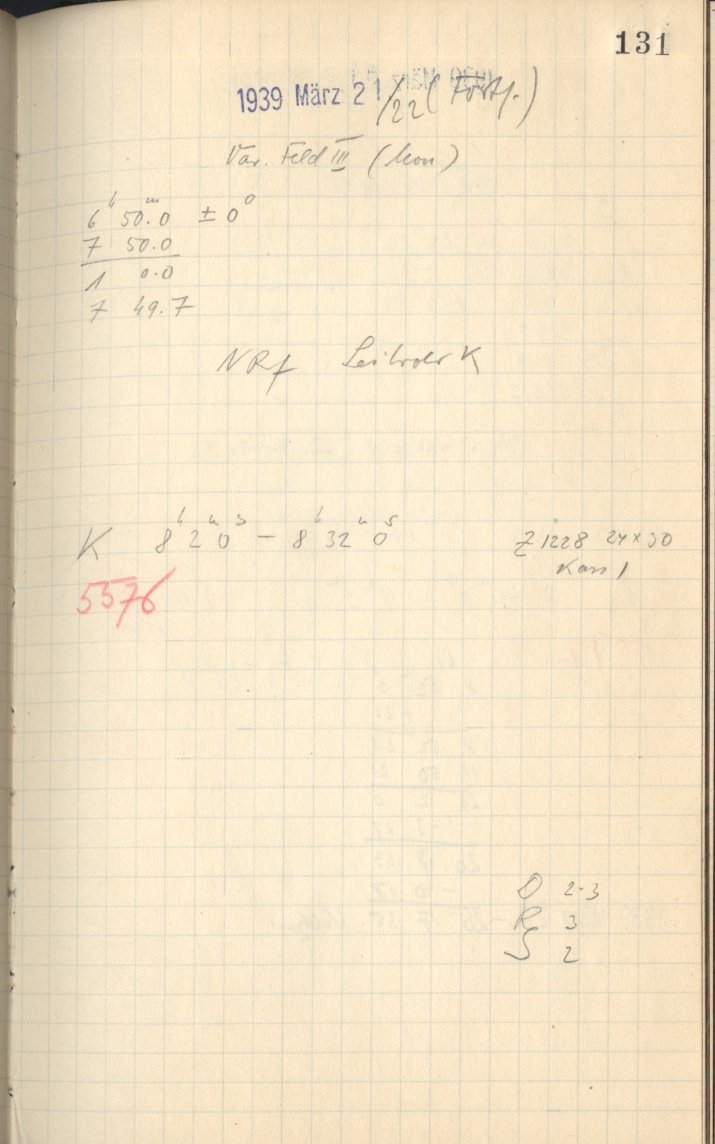 131
1939 März 21/22 (Fortf.)
Var. Feld III (Mon)
6h 50.0m ± 0°
7 50.0
1 0.0
7 49.7
NRf K
K 8h 2m 0s – 8h 32m 0s
Z 1228 24 × 30
Kass 1
5576
D 2-3
R 3
S 2